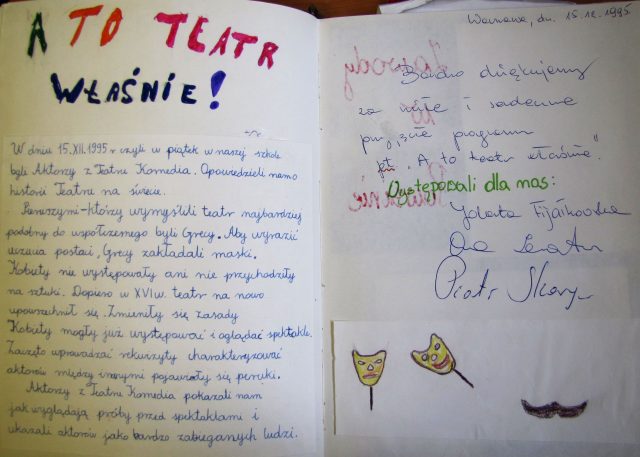 A TO TEATR
WŁAŚNIE!
W dniu 15.XII.1995 r czyli w piątek w naszej szkole
byli Aktorzy z Teatru Komedia. Opowiedzieli nam o
historii Teatru na świecie.
Pierwszymi-którzy wymyślili teatr najbardziej
podobny do współczesnego byli Grecy. Aby wyrazić
uczucia postaci, Grecy zakładali maski.
Kobiety nie występowały ani nie przychodziły
na sztuki. Dopiero w XVI w. teatr na nowo
upowszechnił się. Zmieniły się zasady
Kobiety mogły już występować i oglądać spektakle.
Zaczęto wprowadzać rekwizyty charakteryzować
aktorów między innymi pojawiły się peruki.
Aktorzy z Teatru Komedia pokazali nam
jak wyglądają próby przed spektaklami i
ukazali aktorów jako bardzo zabieganych ludzi.
Warszawa, dn. 15.12.1995.
Bardzo dziękujemy
za miłe i serdeczne
przyjęcie programu
pt. "A to teatr właśnie".
Występowali dla nas:
Jolanta Fijałkowska
Piotr